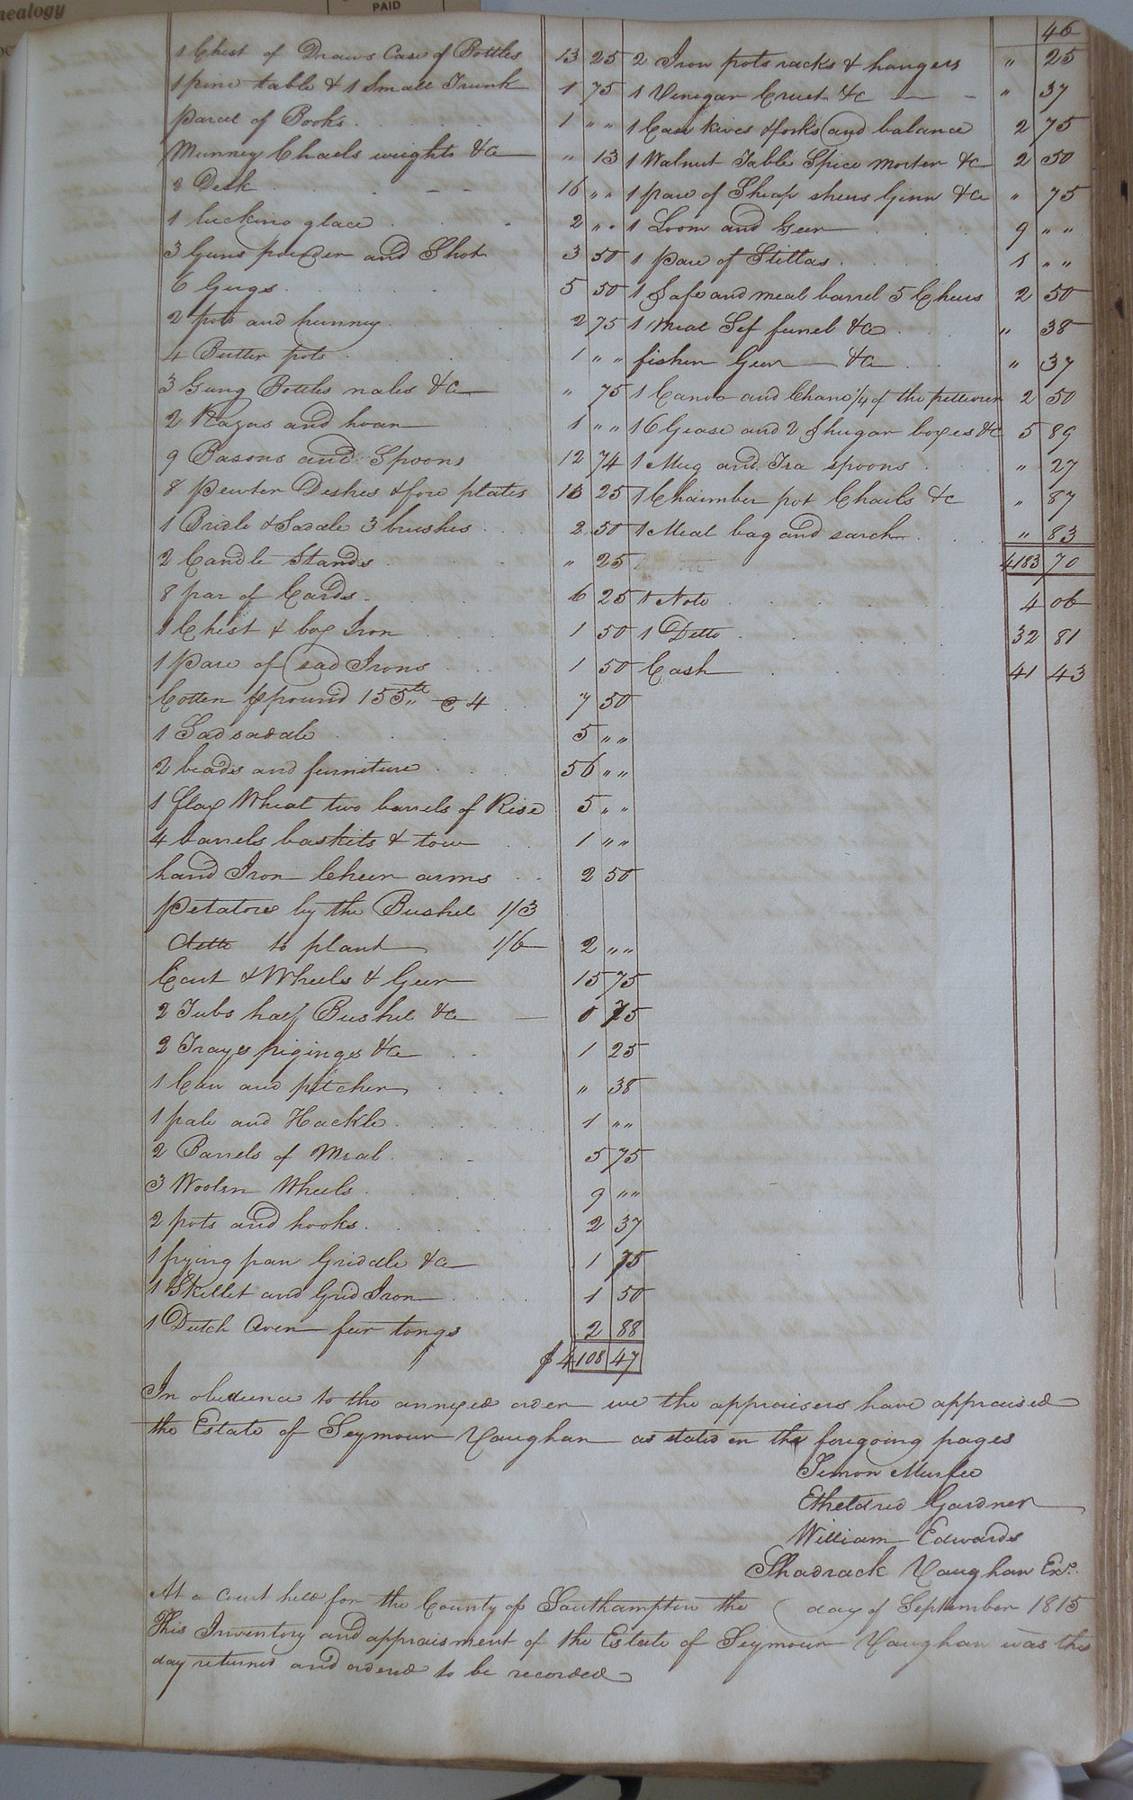 nealogy
PAID
46
1 Chest of Draws Case of Bottles 13 25
1 pine table & 1 Small Trunk 1 75
Parcel of Books 1 " "
Munney Chaels weights &c " 13
2 Desk 16 " "
1 lucking glace 2 " "
3 Guns powder and Shot 3 50
6 Gugs 5 50
2 pots and hunney 2 75
4 Butter pots 1 " "
3 Gung Bottles nales &c " 75
2 Razas and hoan 1 " "
9 Basons and Spoons 12 74
8 Pewter Deshes & fore plates 13 25
1 Bridle & Sadale 3 brushes 2 50
2 Candle Stands " 25
8 par of Cards 6 25
1 Chest & box Iron 1 50
1 Pare of sad Irons 1 50
Cotten pound 155 lb @ 4 7 50
1 Sad sadale 5 " "
2 beads and furniture 56 " "
1 flax Wheal two barrels of Rise 5 " "
4 barrels baskits & tow 1 " "
hand Iron Cheer arms 2 50
Petatoes by the Bushel 1/3
ditto to plant 1/6 2 " "
Cart & Wheels & Geer 15 75
2 Tubs half Bushel &c 0 75
2 Trays piginges &c 1 25
1 Can and pitcher " 38
1 pale and Hackle 1 " "
2 Barrels of Meal 5 75
3 Woolen Wheels 9 " "
2 pots and hooks 2 37
1 frying pan Griddle &c 1 75
1 Skellet and Grid Iron 1 50
1 Dutch Oven feir tongs 2 88
$ 4108 47
2 Iron pots racks & hangers " 25
1 Vinegar Cruet &c " 37
1 Case kives & forks and balance 2 75
1 Walnut Table Spice morter &c 2 50
1 pare of Sheap sheers Ginn &c " 75
1 Loom and Geer 9 " "
1 pare of Stillas 1 " "
1 Safe and meal barrel 5 Cheers 2 50
1 Meal Sef funel &c " 38
fishen Geer &c " 37
1 Canoe and Chane 1/4 of the pettiover 2 50
16 Gease and 2 Shugar boxes &c 5 89
1 Mug and Tea spoons " 27
1 Chaimber pot Chaels &c " 87
1 Meal bag and sarch " 83
4183 70
1 Note 4 06
1 Ditto 32 81
Cash 41 43
In obedience to the annexed order we the appraisers have appraised
the Estate of Seymour Vaughan as stated in the foregoing pages
Simon Murfee
Etheldred Gardner
William Edwards
Shadrack Vaughan Exr.
At a Court held for the County of Southampton the day of September 1815
This Inventory and appraisment of the Estate of Seymour Vaughan was this
day returned and ordered to be recorded